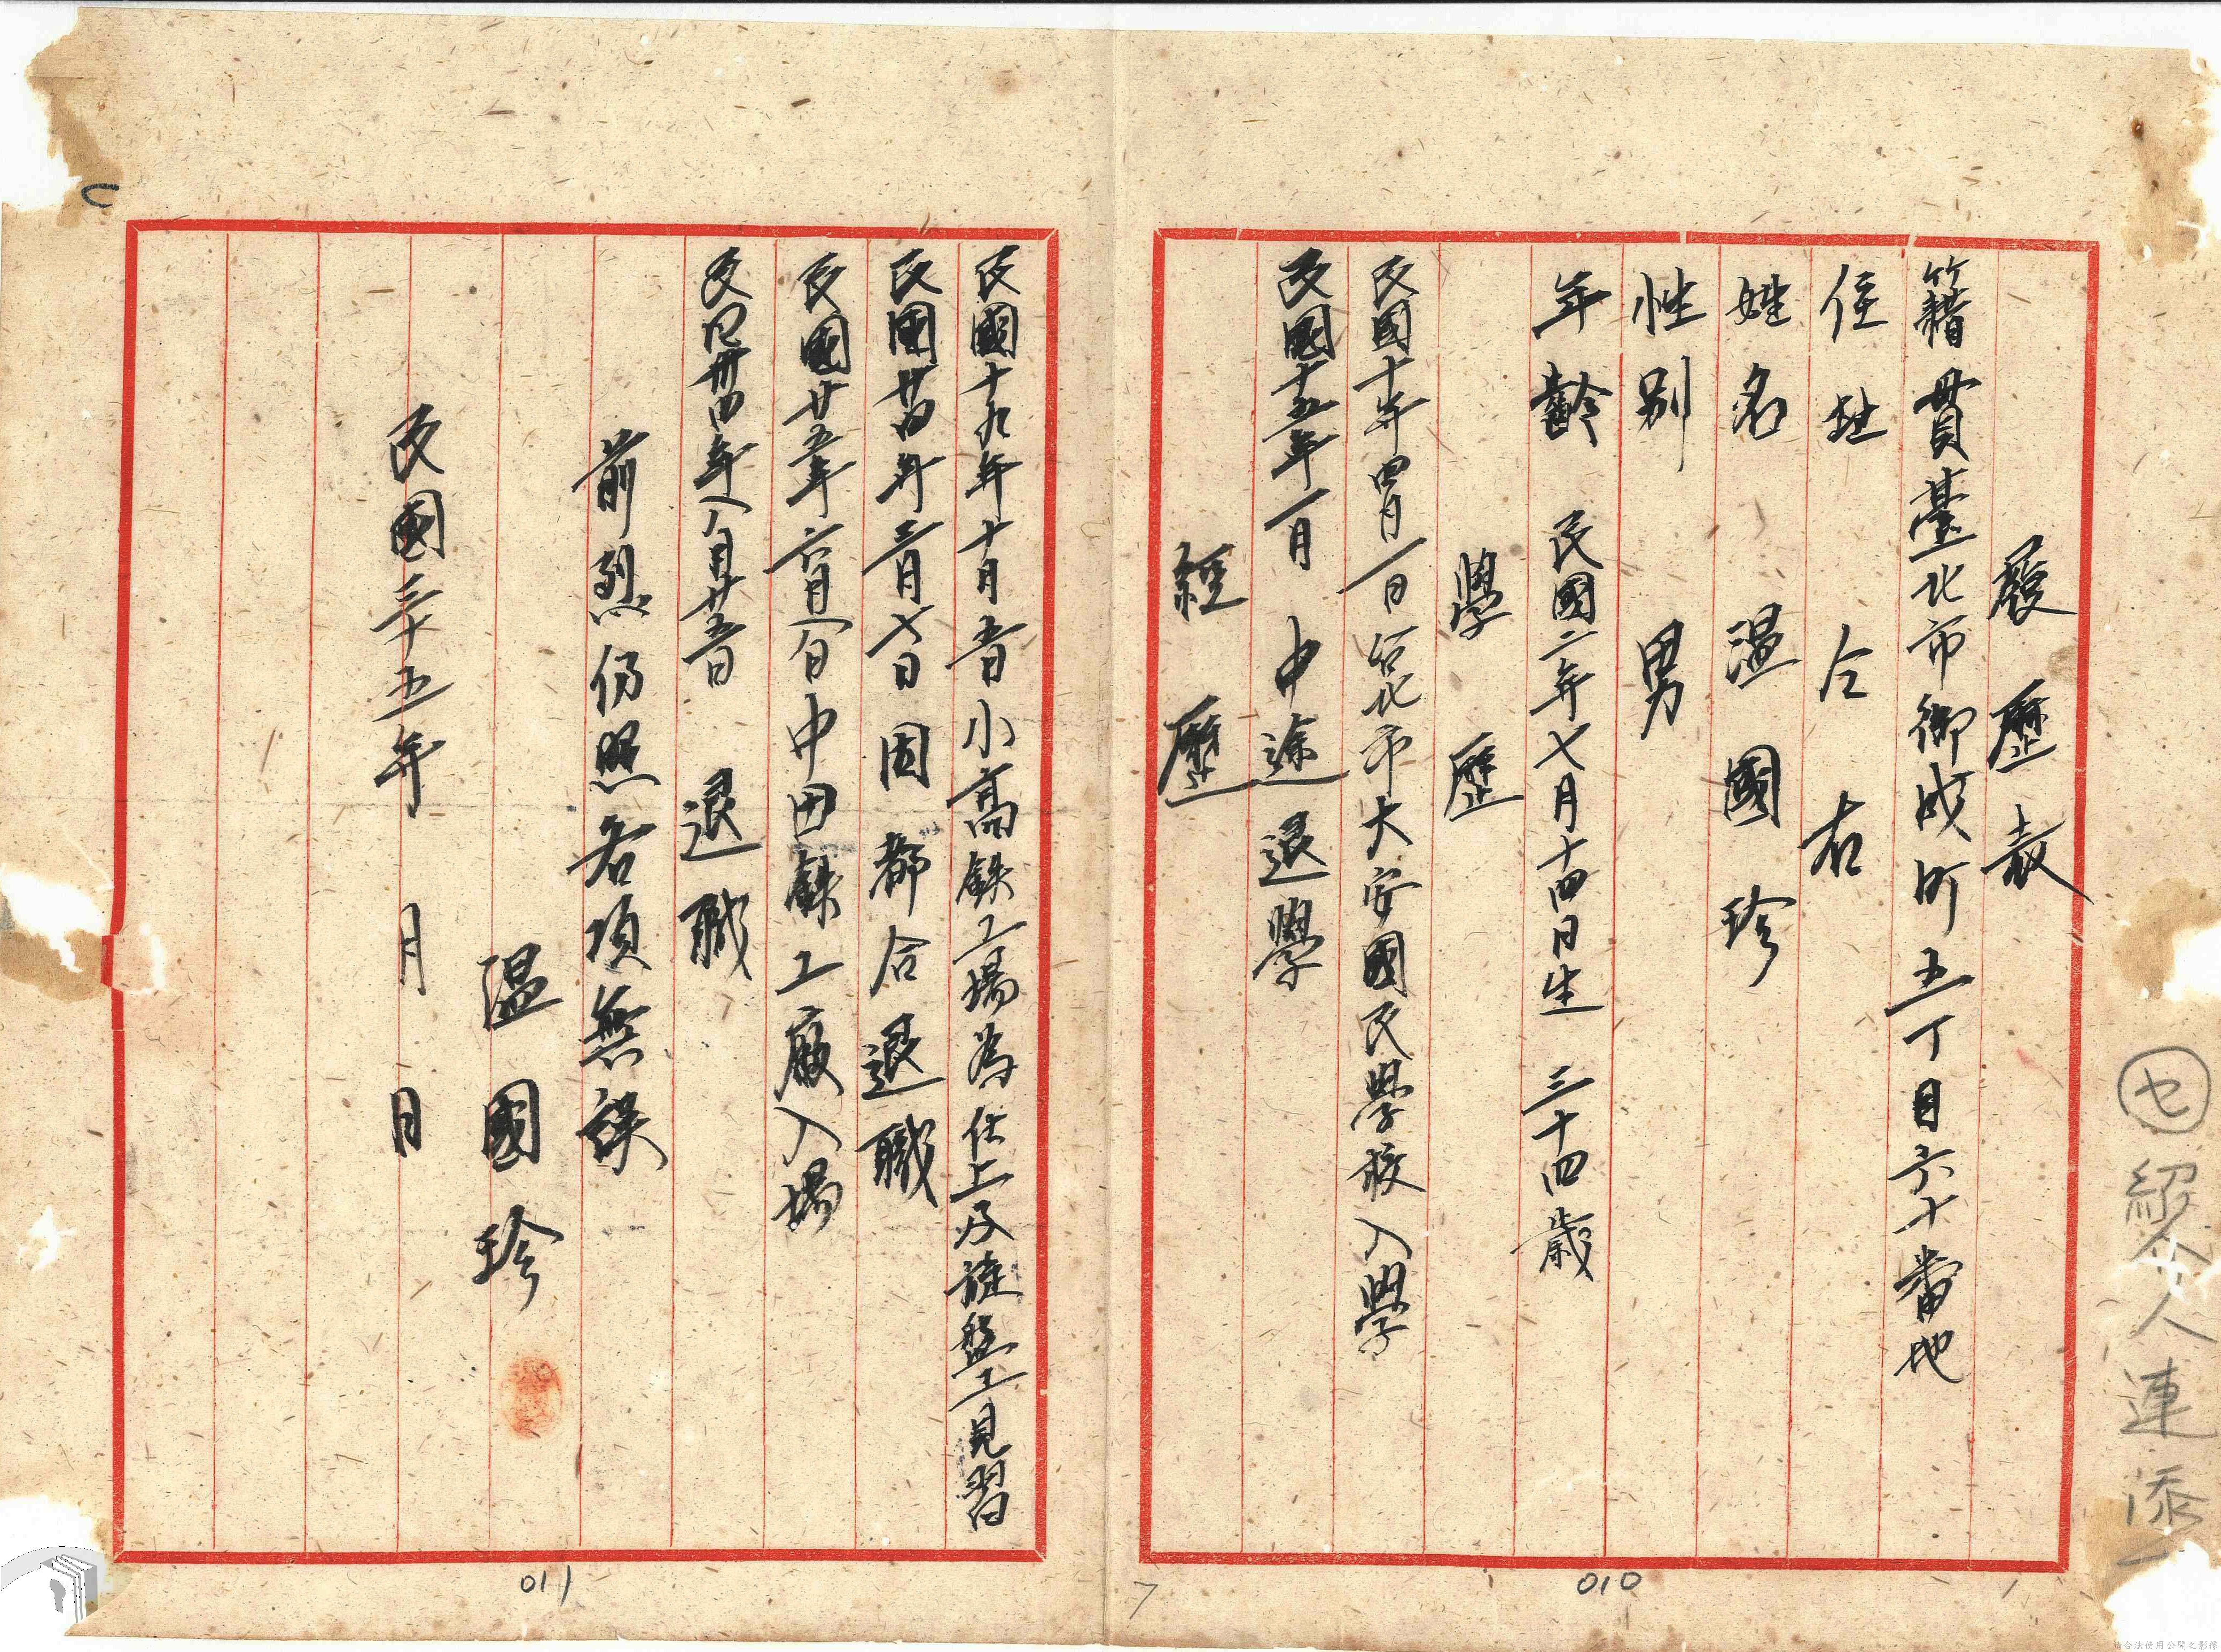 ㊆紹介人連添
履歷表
籍貫臺北市御成町五丁目六十番地
住址 仝右
姓名 温國珍
性別 男
年齡 民國二年七月十四日生 三十四歲
學歷
民國十年四月一日台北市大安國民學校入學
民國十五年一月 中途退學
經歷
民國十九年十月五日小高鉄工場為仕上及旋盤工見習
民國廿四年三月七日因都合退職
民國廿五年六月一日中田鉄工廠入場
民國卅四年八月廿五日 退職
前烈仍照各項無誤
温國珍
民國三十五年 月 日
010
011